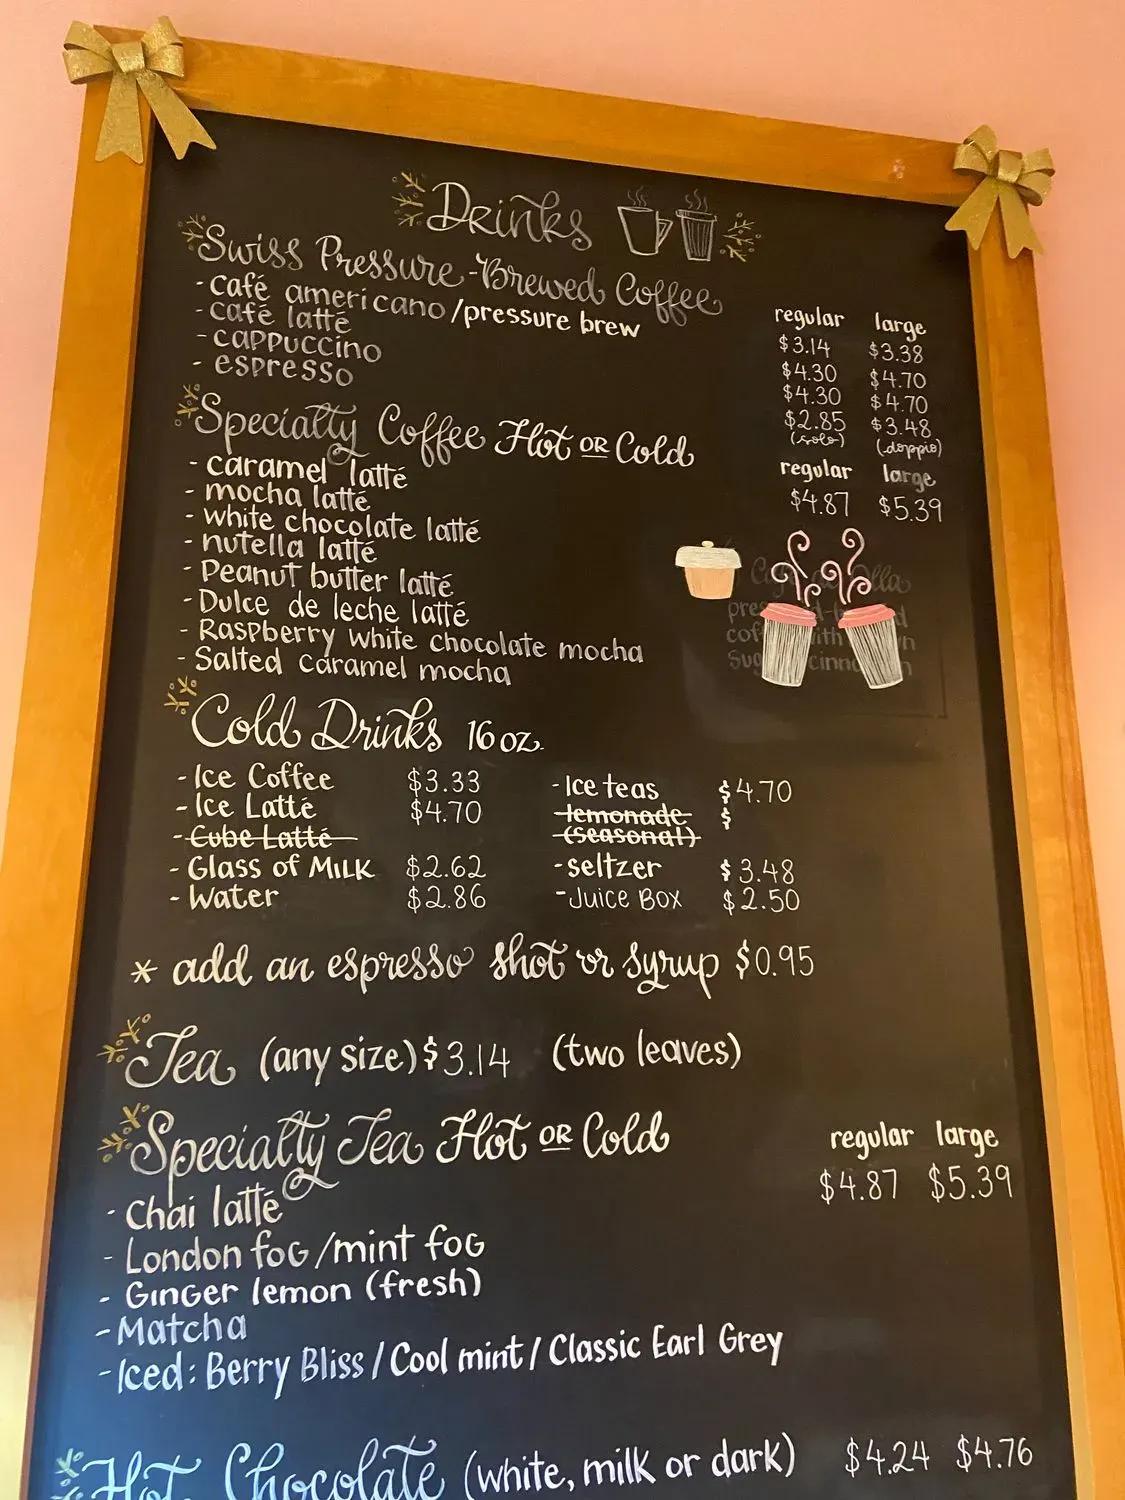 Drinks
Swiss Pressure-Brewed Coffee
regular large
- café americano/pressure brew $3.14 $3.38
- café latté $4.30 $4.70
- cappuccino $4.30 $4.70
- espresso $2.85 $3.48
(solo) (doppio)
Specialty Coffee Hot OR Cold
regular large
$4.87 $5.39
- caramel latté
- mocha latté
- white chocolate latté
- nutella latté
- Peanut butter latté
- Dulce de leche latté
- Raspberry white chocolate mocha
- Salted caramel mocha
Cold Drinks 16 oz.
- Ice Coffee $3.33
- Ice Latté $4.70
- Cube Latté
- Glass of Milk $2.62
- Water $2.86
- Ice teas $4.70
lemonade $
(seasonal)
- seltzer $3.48
- Juice Box $2.50
* add an espresso shot or syrup $0.95
Tea (any size) $3.14 (two leaves)
Specialty Tea Hot OR Cold
regular large
$4.87 $5.39
- Chai latté
- London fog/mint fog
- Ginger lemon (fresh)
- Matcha
- Iced: Berry Bliss/Cool mint/Classic Earl Grey
Hot Chocolate (white, milk or dark) $4.24 $4.76